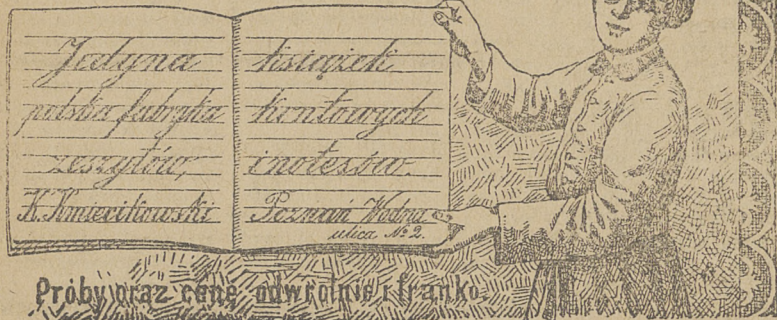 Jedyna
polska fabryka
zeszytów,
K. Kmiecikowski
książek
kontowych
i notesów.
Poznań Wodna
ulica No 2.
Próby oraz cenę odwrotnie i franko.